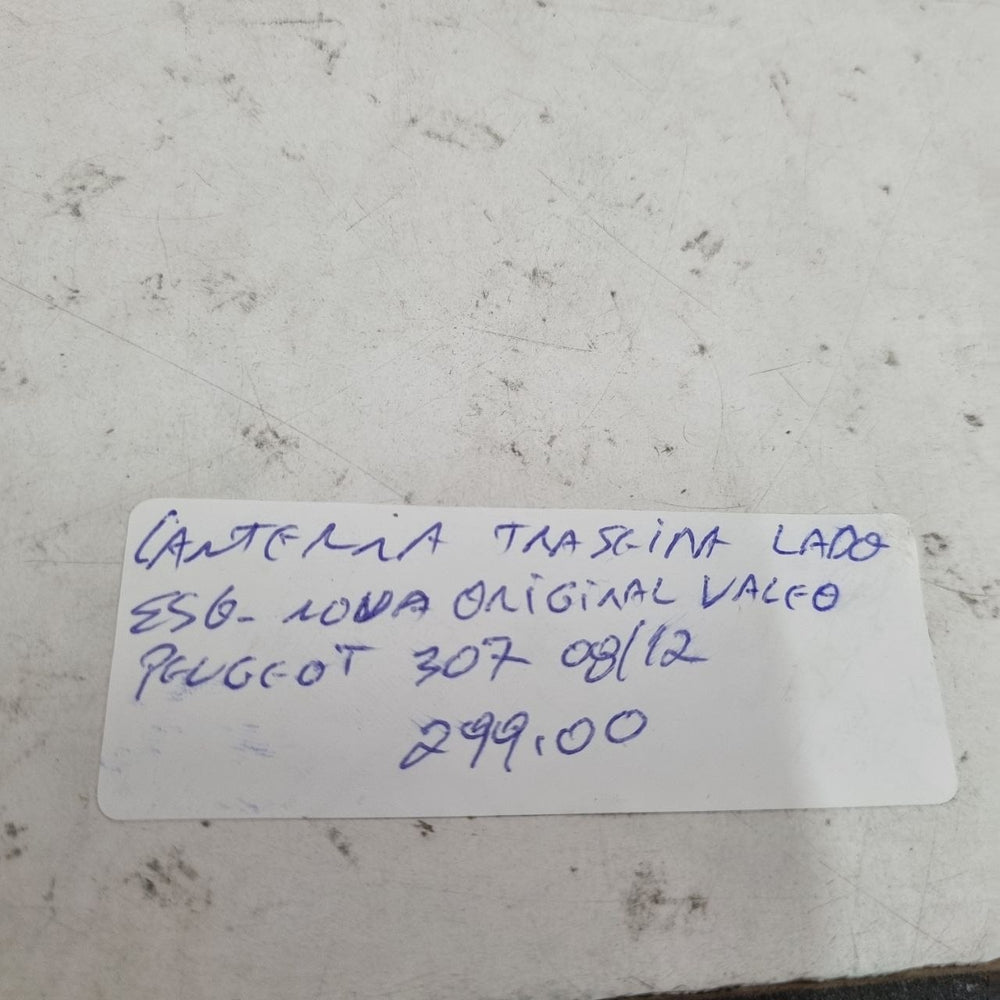 LANTERNA TRASEIRA LADO
ESQ- NOVA ORIGINAL VALEO
PEUGEOT 307 08/12
299,00